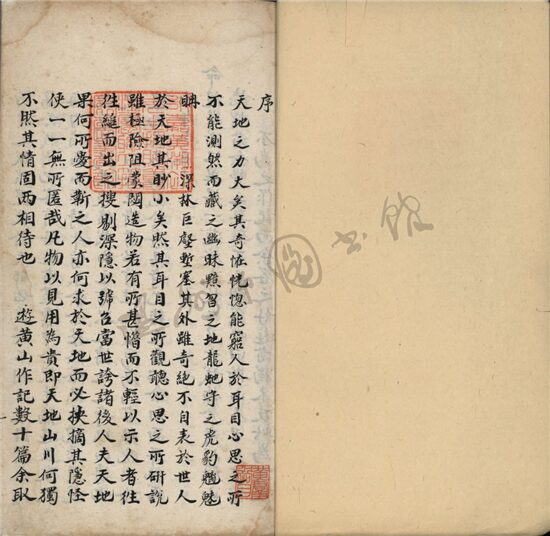 序
天地之力大矣其奇恠恍惚能窮人於耳目心思之所
不能測然而藏之幽昧黯曶之地龍虵守之虎豹魑魅
䎹深林巨壑塹塞其外雖奇絶不自表於世人
於天地其眇小矣然其耳目之所觀聽心思之所研說
雖極險阻蒙闇造物若有所甚惜而不輕以示人者往
往縋而出之搜剔深隱以號召當世誇諸後人夫天地
果何所愛而靳之人亦何求於天地而必抉摘其隱怪
使一一無所匿哉凡物以見用為貴即天地山川何獨
不然其情固兩相待也　遊黃山作記數十篇余取